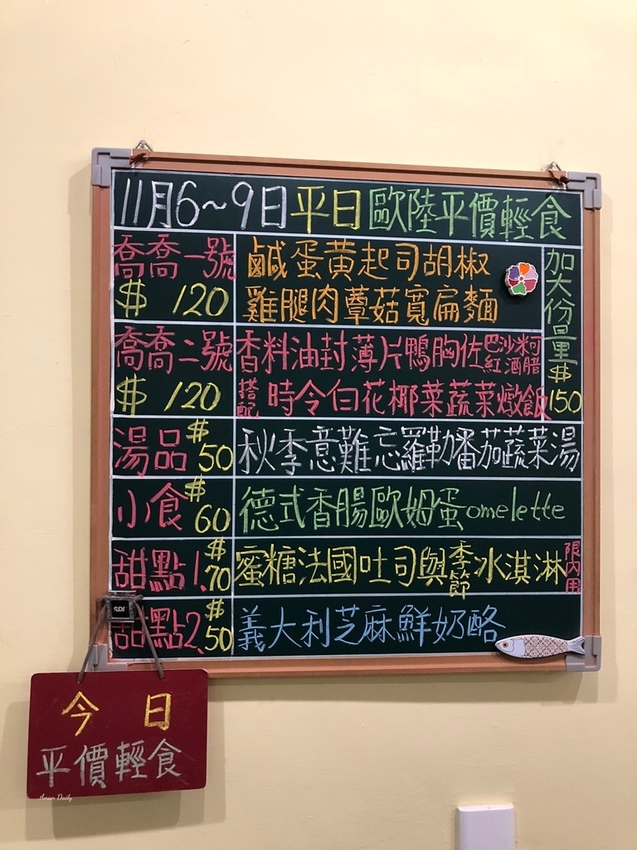 11月6~9日平日歐陸平價輕食
喬喬一號
$ 120
鹹蛋黃起司胡椒
雞腿肉蕈菇寬扁麵
加大份量$150
喬喬二號
$ 120
香料油封薄片鴨胸佐巴沙米可紅酒醋
搭配 時令白花椰菜蔬菜燉飯
湯品$50
秋季意難忘羅勒番茄蔬菜湯
小食$60
德式香腸歐姆蛋omelette
甜點1.$70
蜜糖法國吐司與季節冰淇淋限內用
甜點2.$50
義大利芝麻鮮奶酪
SDI
今日
平價輕食